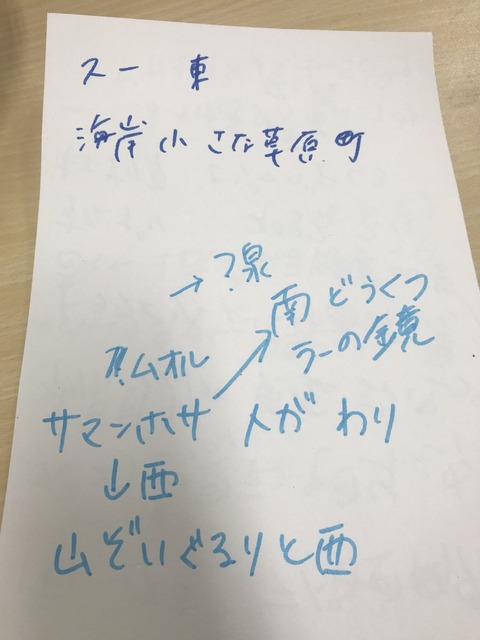 スー 東
海岸 小さな草原町
→ ?泉
南 どうくつ
ラーの鏡
ムオル
サマンホサ 人がわり
↓西
山ぞいぐるりと西